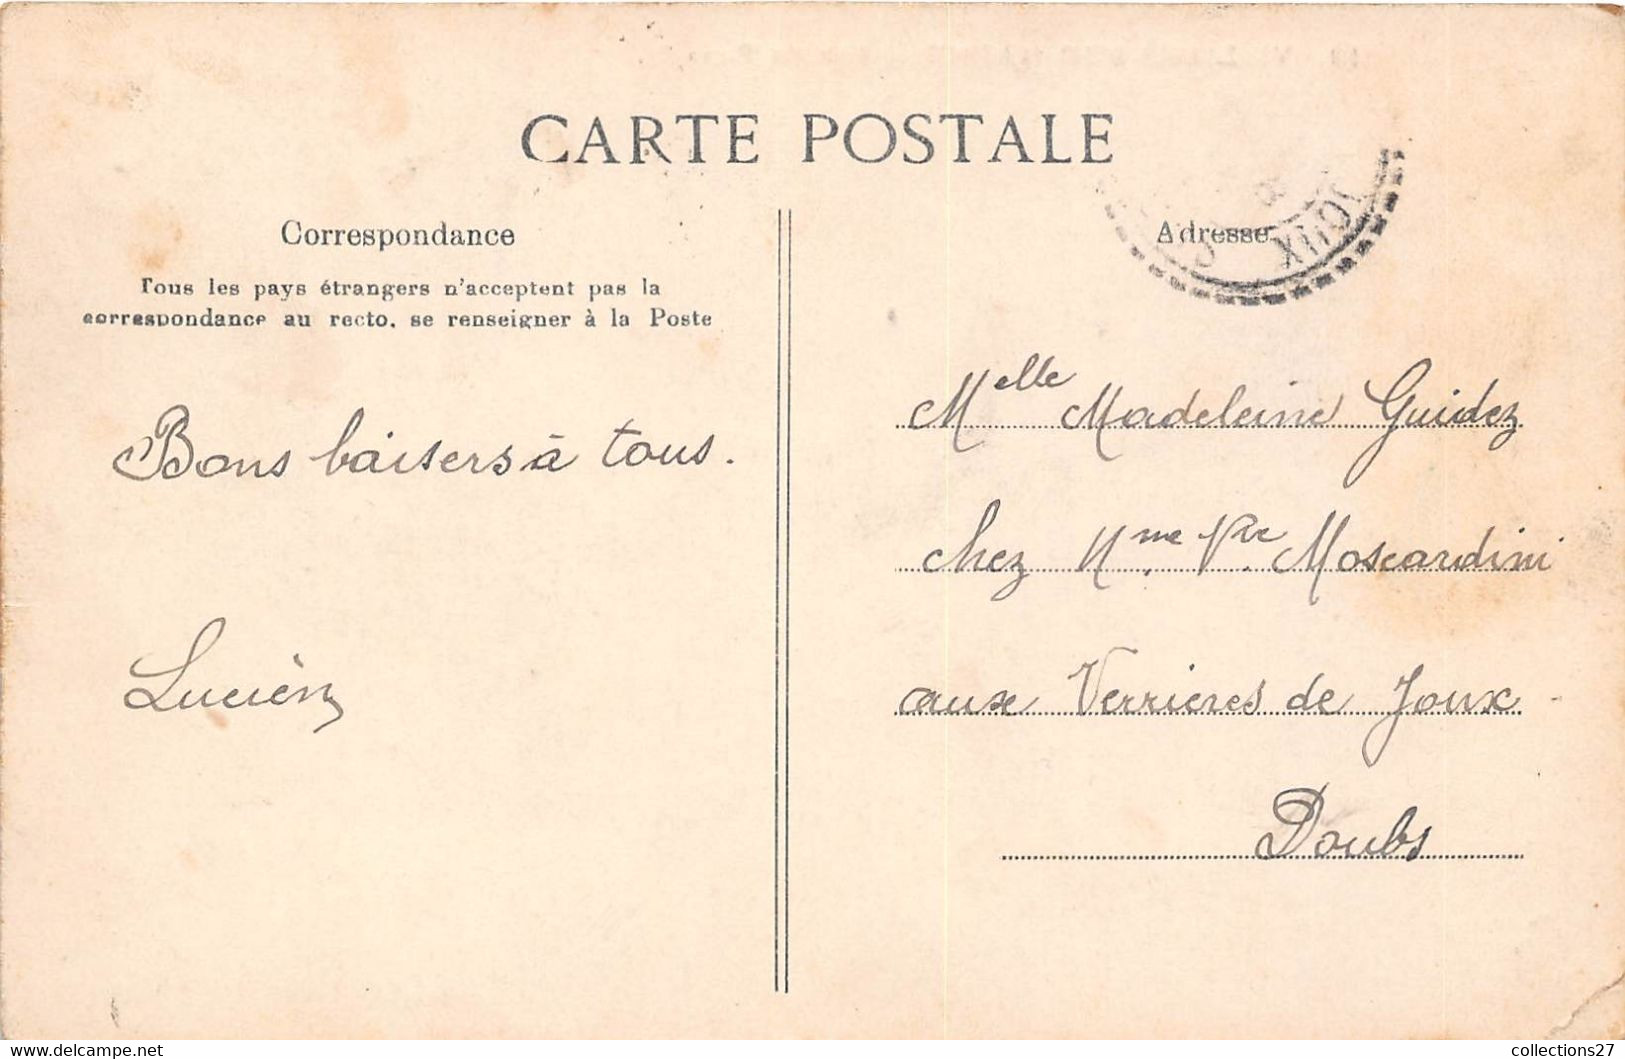 CARTE POSTALE
Correspondance
Tous les pays étrangers n'acceptent pas la
correspondance au recto, se renseigner à la Poste
Bons baisers à tous.
Lucien
Adresse
JOUX
Melle Madeleine Guidez
chez Mme Vve Moscardini
aux Verrieres de Joux
Doubs
collections27